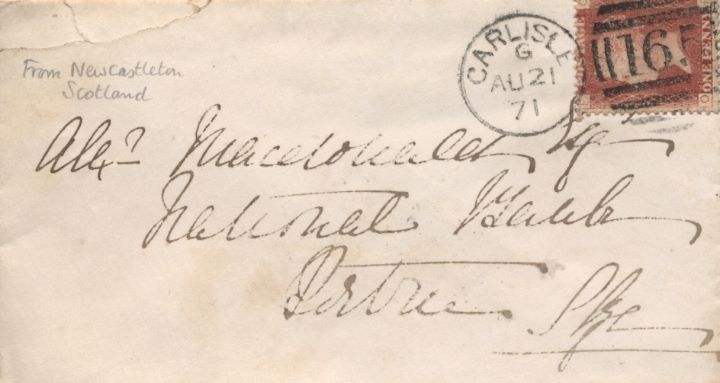 From Newcastleton
Scotland
CARLISLE
G
AU 21
71
165
ONE PENNY
Alexr Macdonald Esqr
National Bank
Portree Skye